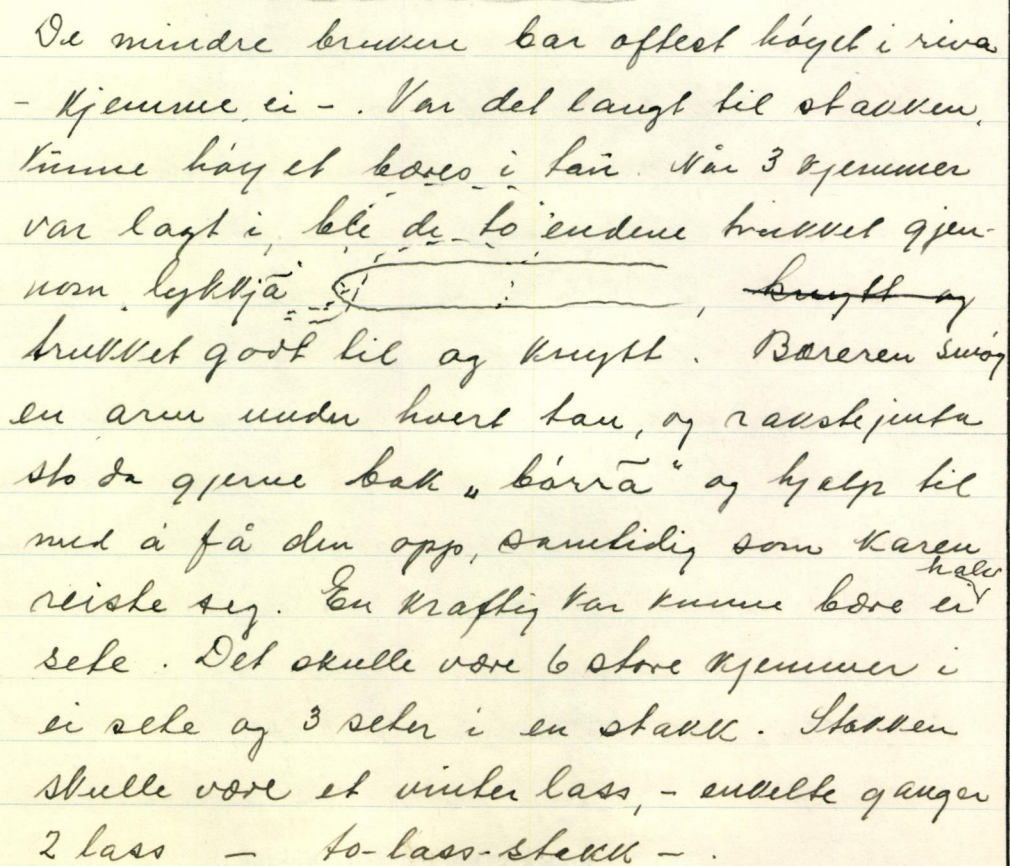 De mindre brukere bar oftest høyet i riva
- kjemme, ei - . Var det langt til stakken,
kunne høyet bæres i tau. Når 3 kjemmer
var lagt i, ble de to endene trukket gjen-
nom lykkjā , knytt og
trukket godt til og knytt. Bæreren smøg
en arm under hvert tau, og rakstejenta
sto da gjerne bak „børrā" og hjalp til
med å få den opp, samtidig som karen
reiste seg. En kraftig kar kunne bære ei halv
sete. Det skulle være 6 store kjemmer i
ei sete og 3 seter i en stakk. Stakken
skulle være et vinterlass, - enkelte ganger
2 lass - to-lass-stakk - .